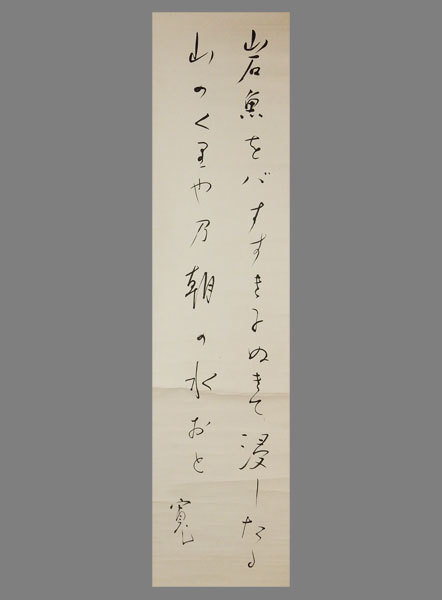 岩魚をバすすきにぬきて浸したる
山のく里や乃朝の水おと
寛